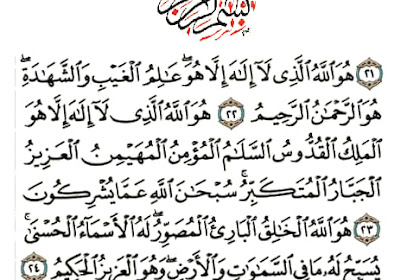 بسم الله الرحمن الرحيم
﴿٢١﴾ هُوَ ٱللَّهُ ٱلَّذِى لَآ إِلَٰهَ إِلَّا هُوَۖ عَٰلِمُ ٱلْغَيْبِ وَٱلشَّهَٰدَةِۖ
هُوَ ٱلرَّحْمَٰنُ ٱلرَّحِيمُ ﴿٢٢﴾ هُوَ ٱللَّهُ ٱلَّذِى لَآ إِلَٰهَ إِلَّا هُوَ
ٱلْمَلِكُ ٱلْقُدُّوسُ ٱلسَّلَٰمُ ٱلْمُؤْمِنُ ٱلْمُهَيْمِنُ ٱلْعَزِيزُ
ٱلْجَبَّارُ ٱلْمُتَكَبِّرُۚ سُبْحَٰنَ ٱللَّهِ عَمَّا يُشْرِكُونَ
﴿٢٣﴾ هُوَ ٱللَّهُ ٱلْخَٰلِقُ ٱلْبَارِئُ ٱلْمُصَوِّرُۖ لَهُ ٱلْأَسْمَآءُ ٱلْحُسْنَىٰۚ
يُسَبِّحُ لَهُۥ مَا فِى ٱلسَّمَٰوَٰتِ وَٱلْأَرْضِۖ وَهُوَ ٱلْعَزِيزُ ٱلْحَكِيمُ ﴿٢٤﴾